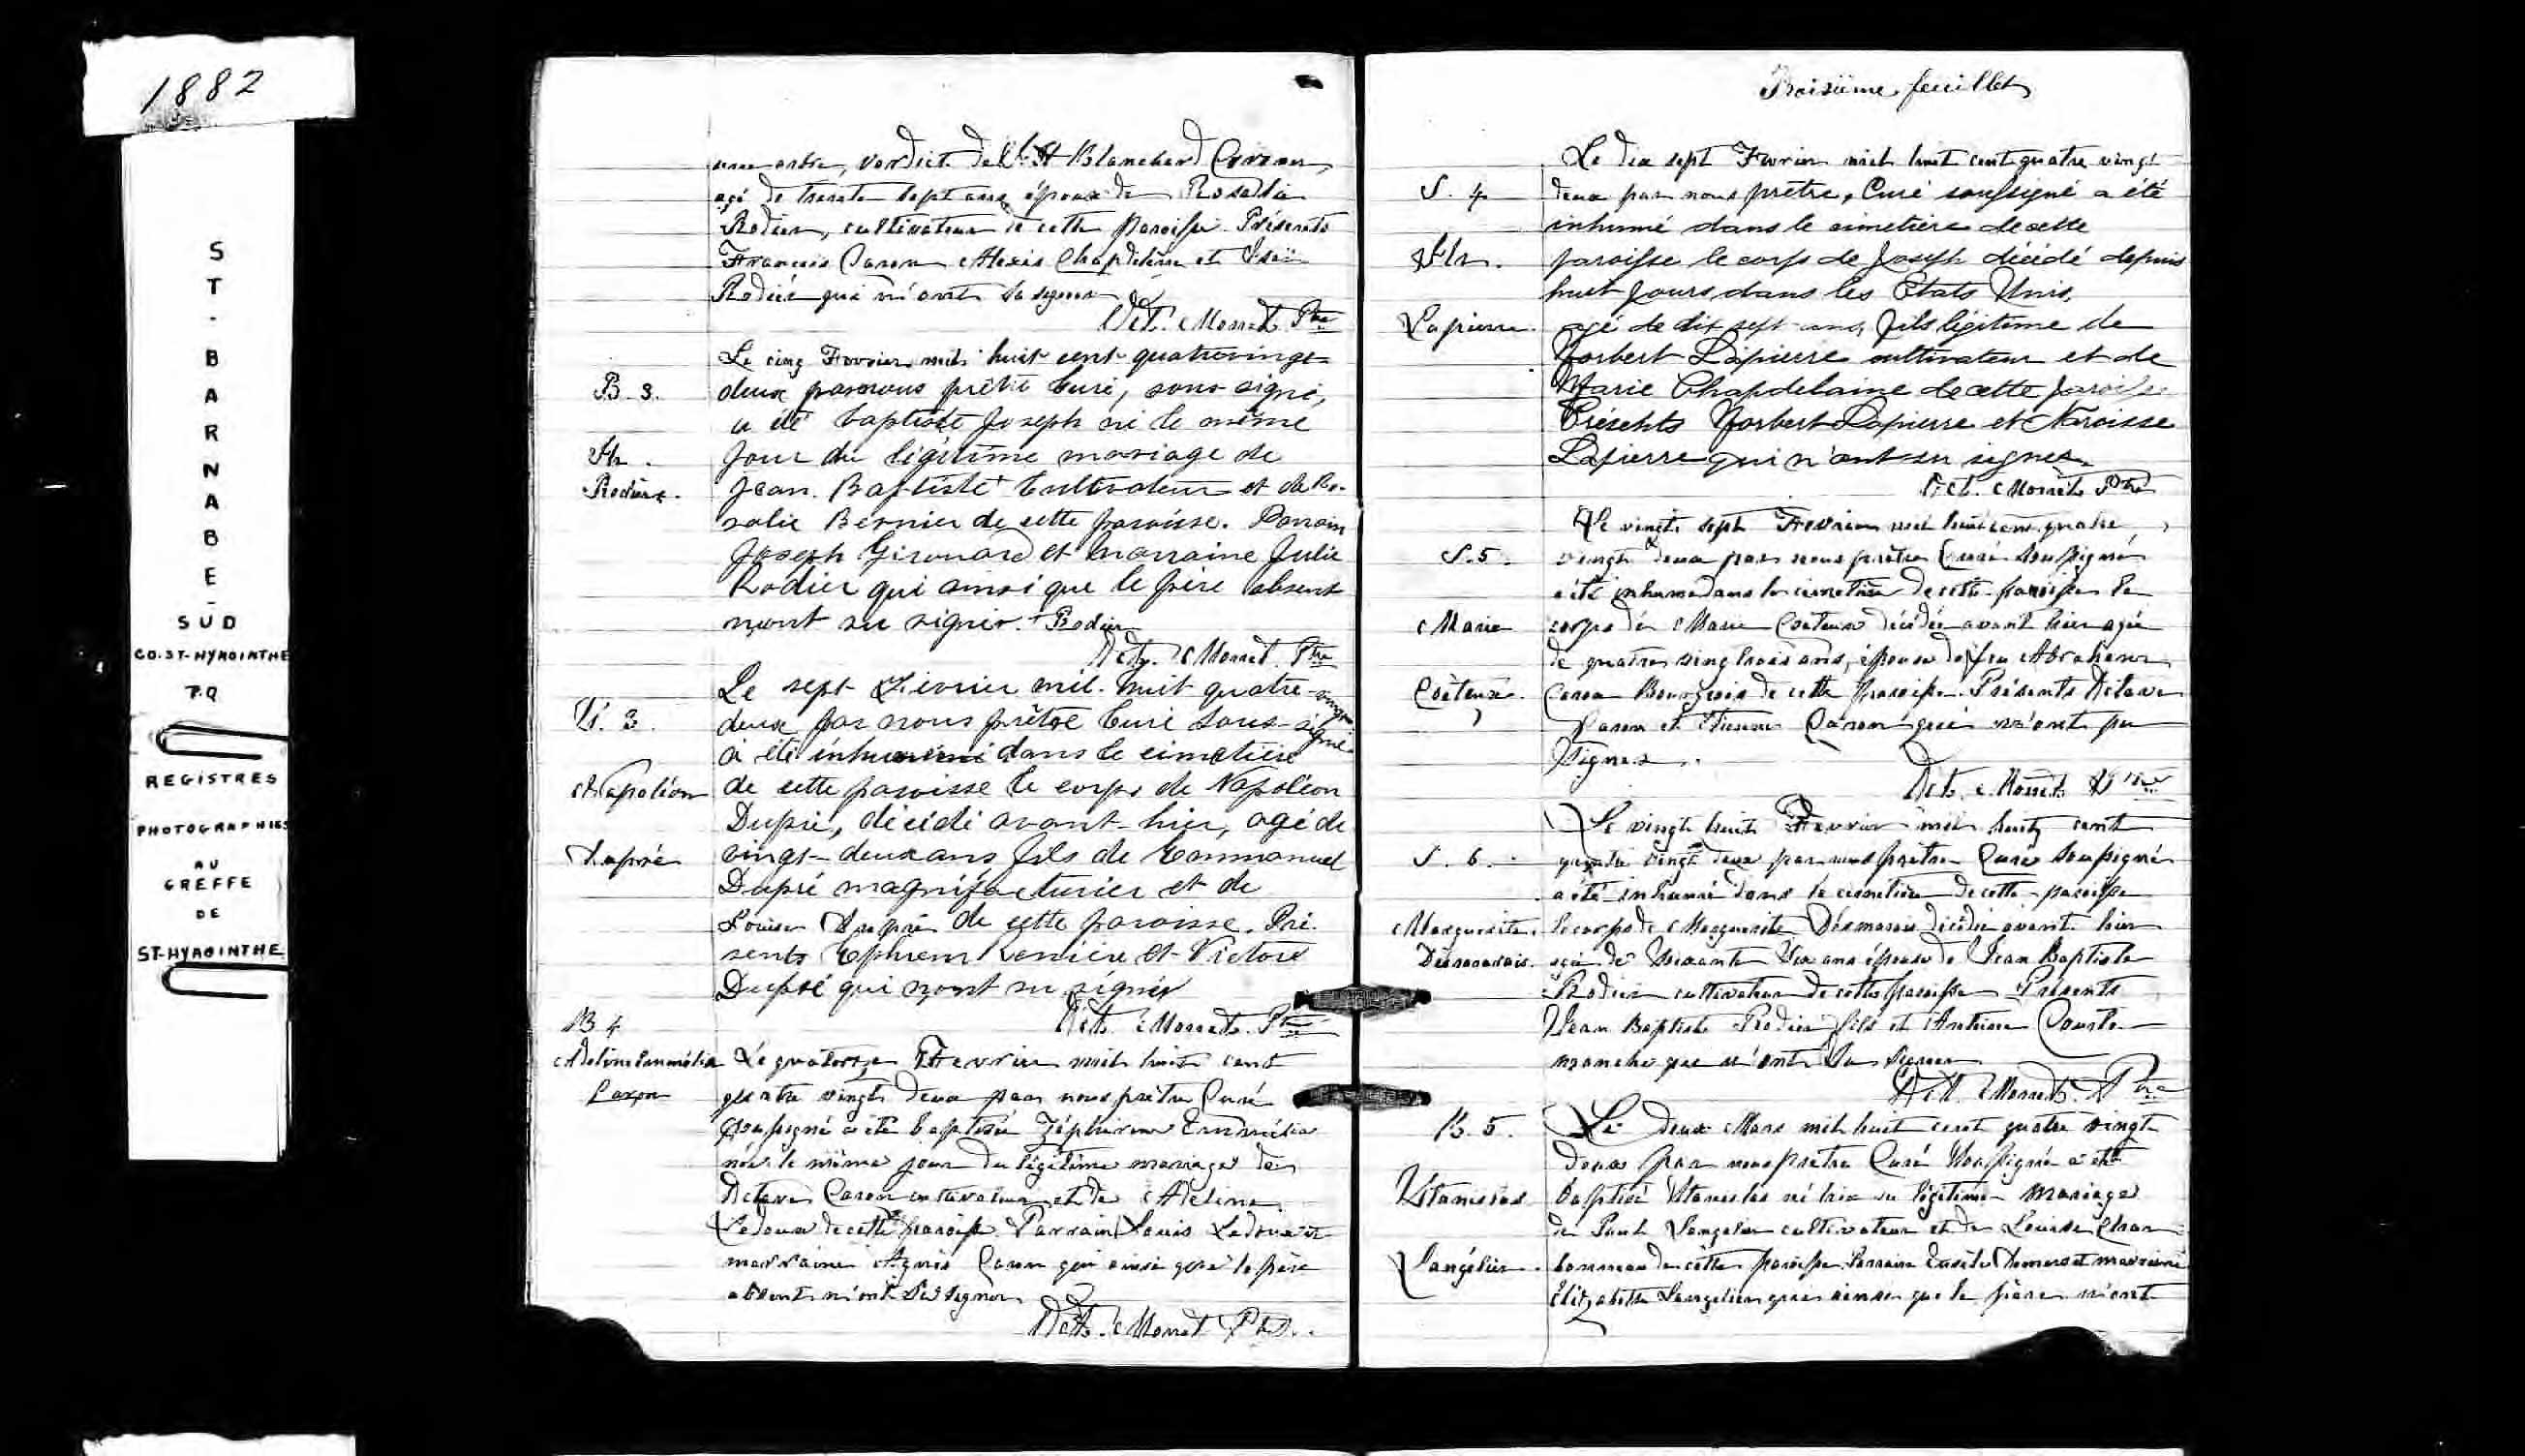 1882
ST-BARNABE-
SUD
CO.ST-HYACINTHE
P.Q
REGISTRES
PHOTOGRAPHIES
AU
GREFFE
DE
ST-HYACINTHE
arbre, verdict de Blanchard Coroner,
agé de trente sept ans époux de Rosalie
Rodier, cultivateur de cette paroisse. Présents
François Caron Alexis Chapdelaine et
Rodier qui n'ont su signer
Ptre
Le cinq Fevrier mil huit cent quatrevingt
B. 3. deux par nous prêtre Curé, sous-signé,
a été baptisé Joseph né le même
Jh. jour du légitime mariage de
Rodier. Jean. Baptiste Cultivateur et de Ro-
salie Bernier de cette paroisse. Parrain
Joseph Girouard et marraine Julie
Rodier qui ainsi que le père absent
n'ont su signer. + Rodier
Ptre
Le sept Février mil. huit quatre-vingt
S. 3. deux par nous prêtre Curé sous-signé
a été inhumé dans le cimetière
Napoléon de cette paroisse le corps de Napoléon
Dupré, décédé avant-hier, agé de
Dupré vingt-deux ans fils de Emmanuel
Dupré et de
Louise Dupré de cette paroisse. Pré-
sents Ephrem et Victore
Dupré qui n'ont su signer
Ptre
B 4
Caron
Le quatorze Fevrier mil huit cent
quatre vingt deux par nous prêtre Curé
soussigné a été baptisée Zéphirine
née le même jour du légitime mariage de
Octave Caron cultivateur et de Adeline
Ledoux de cette paroisse Parrain Louis Ledoux et
marraine Agnès Caron qui ainsi que le père
absent n'ont su signer
Ptre.
Troisième feuillet
Le dix sept Fevrier mil huit cent quatre vingt
S. 4 deux par nous prêtre, Curé soussigné a été
inhumé dans le cimetière de cette
Jh. paroisse le corps de Joseph décédé depuis
huit jours dans les Etats Unis,
Lapierre. agé de dix sept ans, fils légitime de
Norbert Lapierre cultivateur et de
Marie Chapdelaine de cette paroisse
Présents Norbert Lapierre et Narcisse
Lapierre qui n'ont su signer.
Ptre
Le vingt sept Fevrier mil huit cent quatre
S. 5. vingt deux par nous prêtre Curé soussigné
a été inhumé dans le cimetière de cette paroisse le
Marie corps de Marie décédée avant hier agée
de quatre vingt trois ans, épouse de feu Abraham
Caron Bourgeois de cette paroisse. Présents Octave
Caron et Caron qui n'ont pu
signer.
Ptre
Le vingt huit Fevrier mil huit cent
S. 6. quatre vingt deux par nous prêtre Curé soussigné
a été inhumé dans le cimetière de cette paroisse
Marguerite. le corps de Marguerite Desmarais décédée avant hier
Desmarais. agée de soixante dix ans épouse de Jean Baptiste
Rodier cultivateur de cette paroisse Présents
Jean Baptiste Rodier fils et Antoine Courte-
manche qui n'ont su signer
Ptre
B. 5. Le deux Mars mil huit cent quatre vingt
deux par nous prêtre Curé soussigné a été
Stanislas baptisé Stanislas né hier du légitime mariage
de Paul Langelier cultivateur et de Louise Char-
Langélier. bonneau de cette paroisse Parrain et marraine
Elizabeth Langelier qui ainsi que le père n'ont